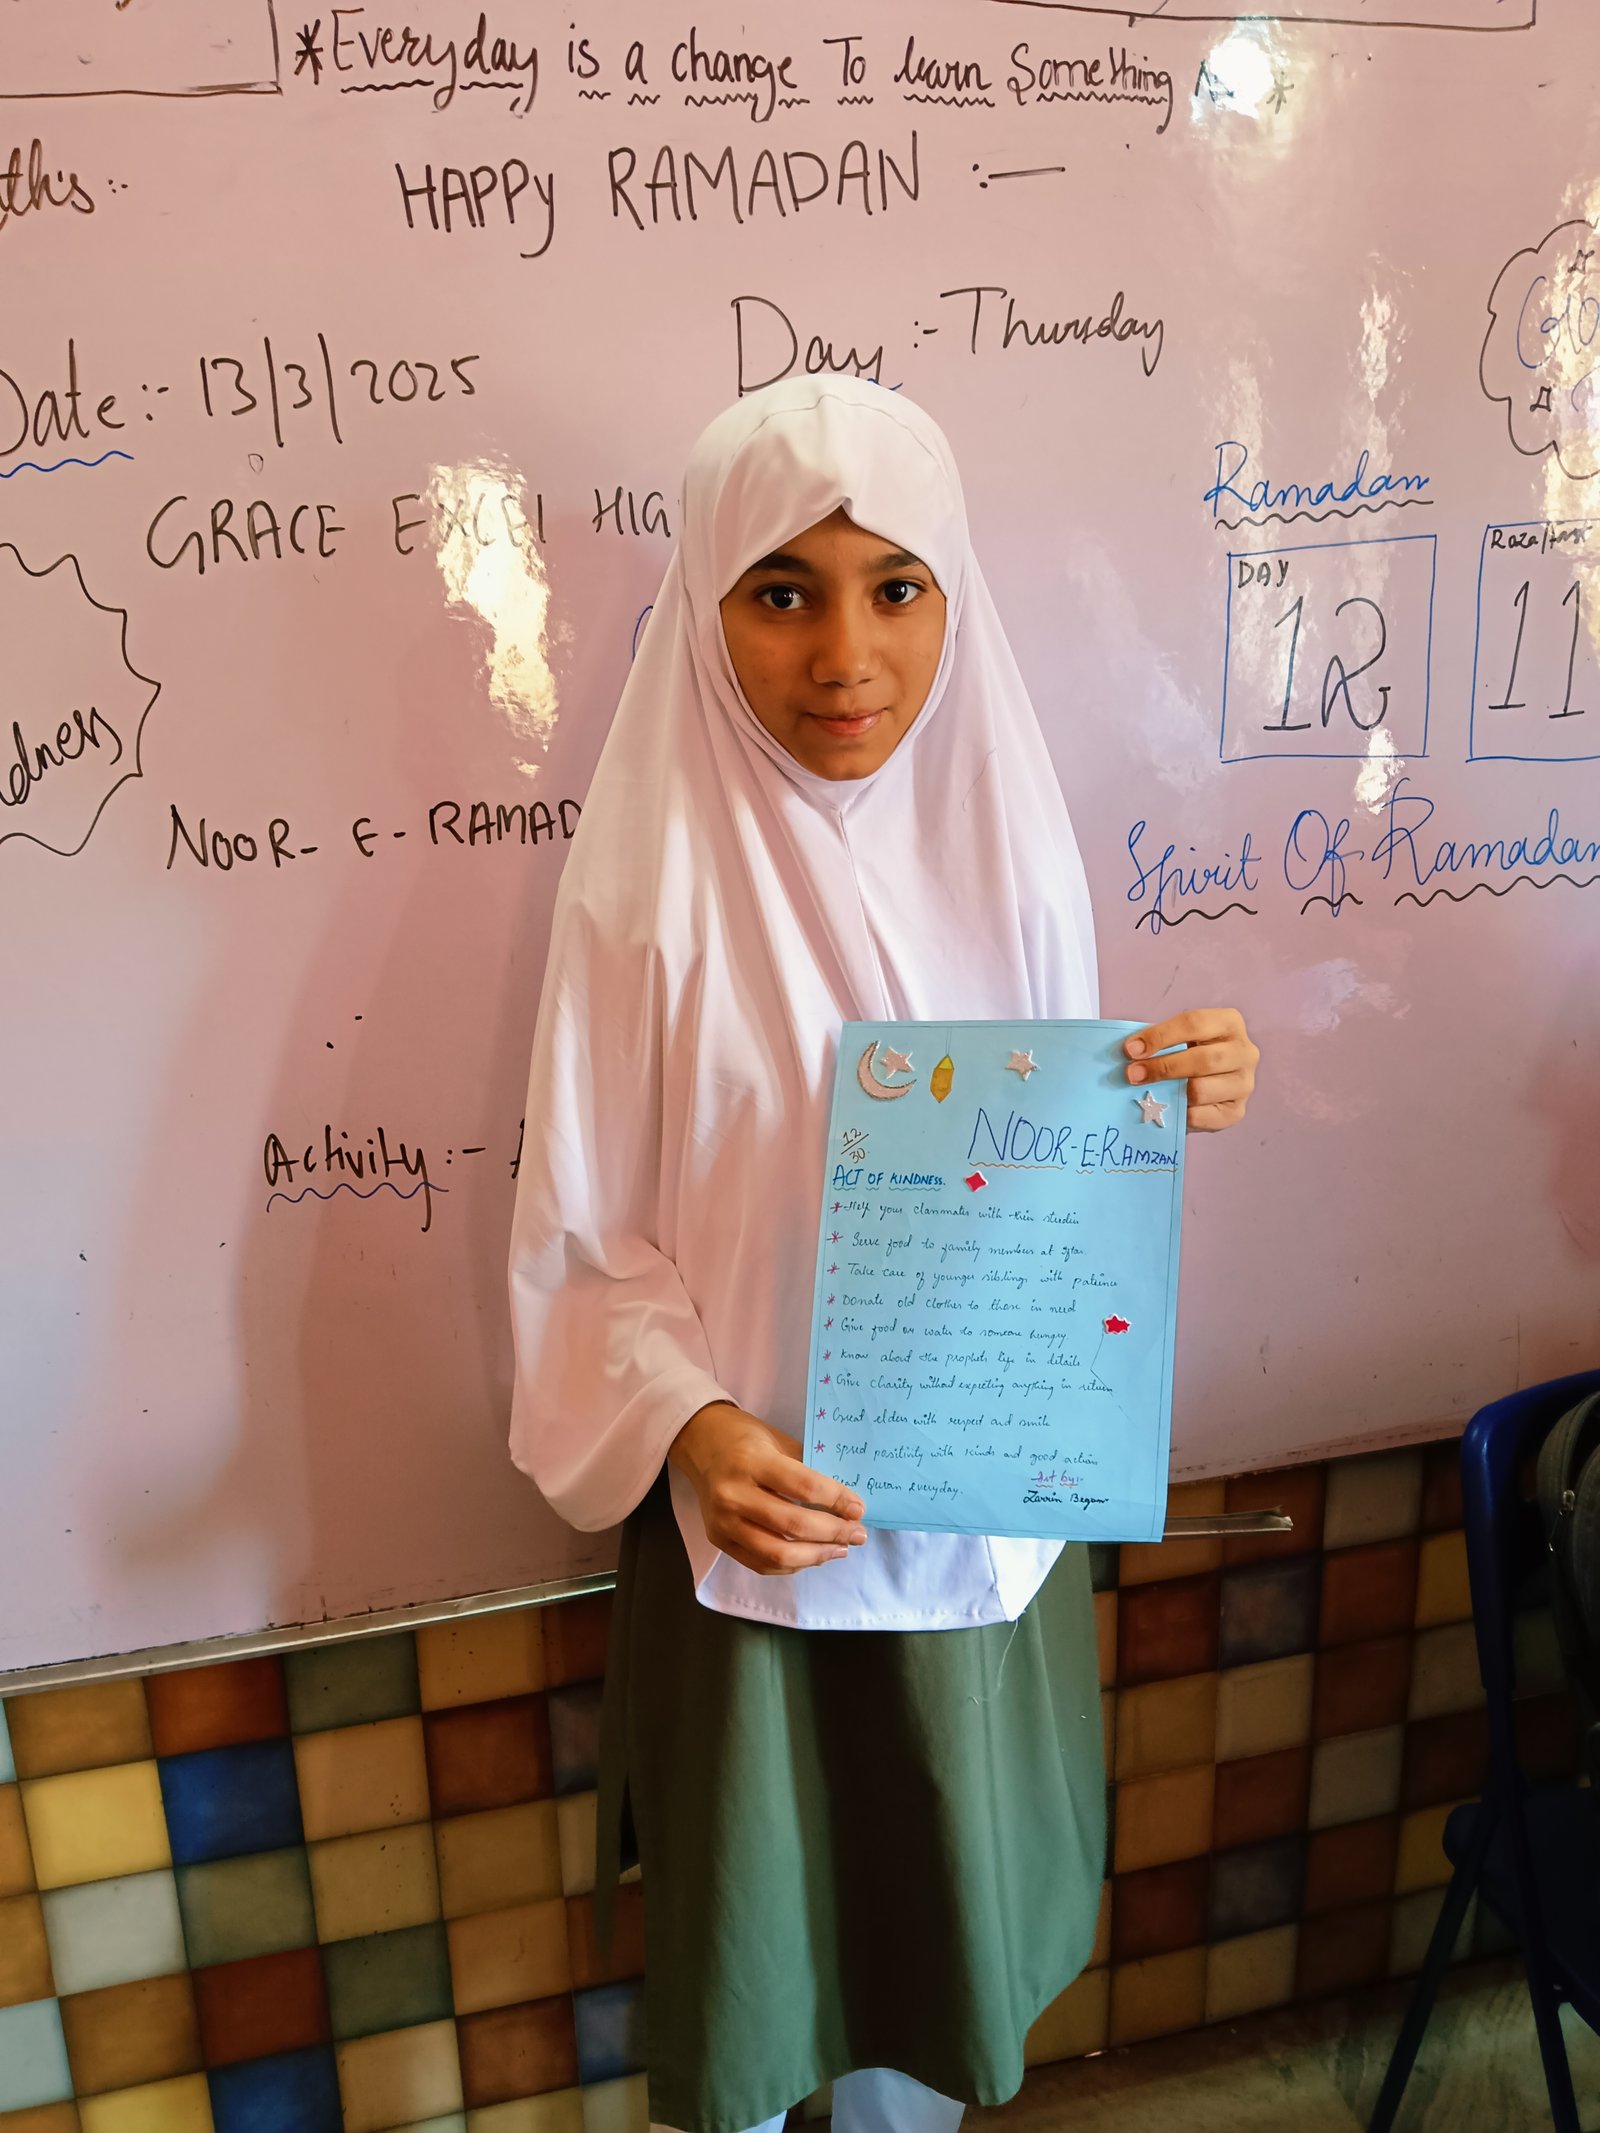 *Everyday is a change To learn Something *
HAPPY RAMADAN :-
Day :- Thursday
Date :- 13/3/2025
GRACE EXCEL HIG
Ramadan
DAY
12
Roza/fast
11
NOOR- E- RAMAD
Spirit Of Ramadan
Activity :-
NOOR-E-RAMZAN.
12/30.
ACT OF KINDNESS.
* Help your classmates with their studies
* Serve food to family members at iftar.
* Take care of younger siblings with patience
* Donate old clothes to those in need
* Give food or water to someone hungry.
* Know about the prophets life in details
* Give charity without expecting anything in return
* Great elders with respect and smile
* spred positivity with kinds and good actions
Read Quran everyday.
Art by:-
Zarrin Begam